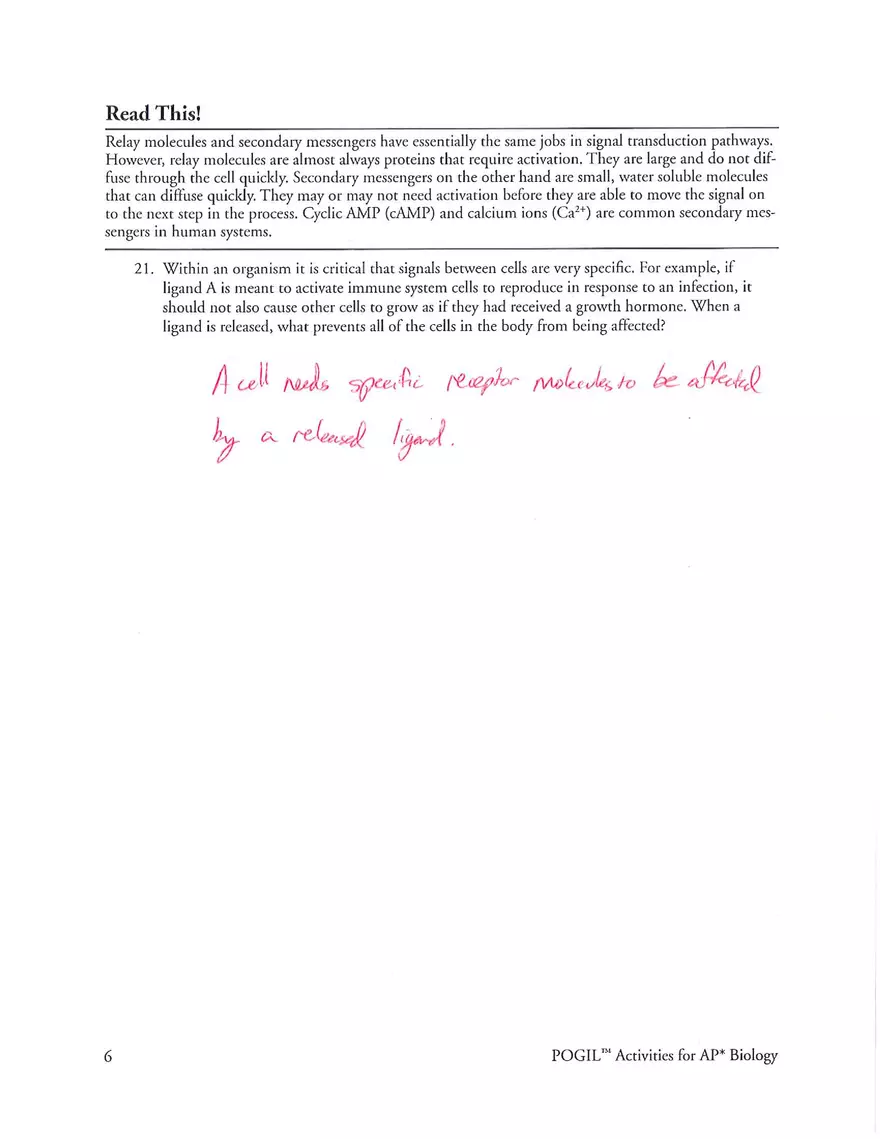 Read This!
Relay molecules and secondary messengers have essentially the same jobs in signal transduction pathways.
However, relay molecules are almost always proteins that require activation. They are large and do not dif-
fuse through the cell quickly. Secondary messengers on the other hand are small, water soluble molecules
that can diffuse quickly. They may or may not need activation before they are able to move the signal on
to the next step in the process. Cyclic AMP (cAMP) and calcium ions (Ca²⁺) are common secondary mes-
sengers in human systems.
21. Within an organism it is critical that signals between cells are very specific. For example, if
ligand A is meant to activate immune system cells to reproduce in response to an infection, it
should not also cause other cells to grow as if they had received a growth hormone. When a
ligand is released, what prevents all of the cells in the body from being affected?
A cell needs specific receptor molecules to be affected
by a released ligand.
6 POGIL™ Activities for AP* Biology